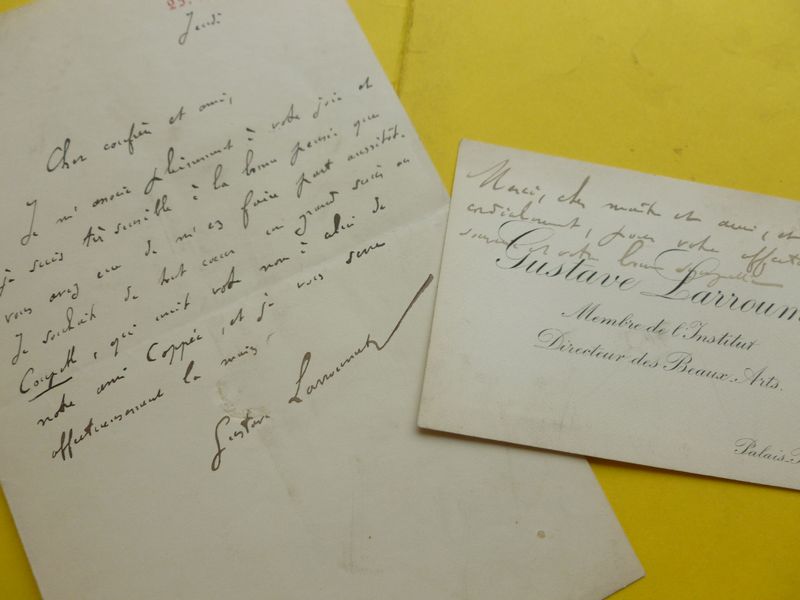 23.
Jeudi
Cher confrère et ami,
Je m'associe pleinement à votre joie et
je suis très sensible à la bonne pensée que
vous avez eue de m'en faire part aussitôt.
Je souhaite de tout cœur un grand succès au
, qui unit votre nom à celui de
notre ami Coppée, et je vous serre
affectueusement la main.
Gustave Larroumet
Merci, cher maître et ami, et
cordialement, pour votre affectueux
souvenir et votre bonne
Gustave Larroum
Membre de l'Institut
Directeur des Beaux-Arts.
Palais-